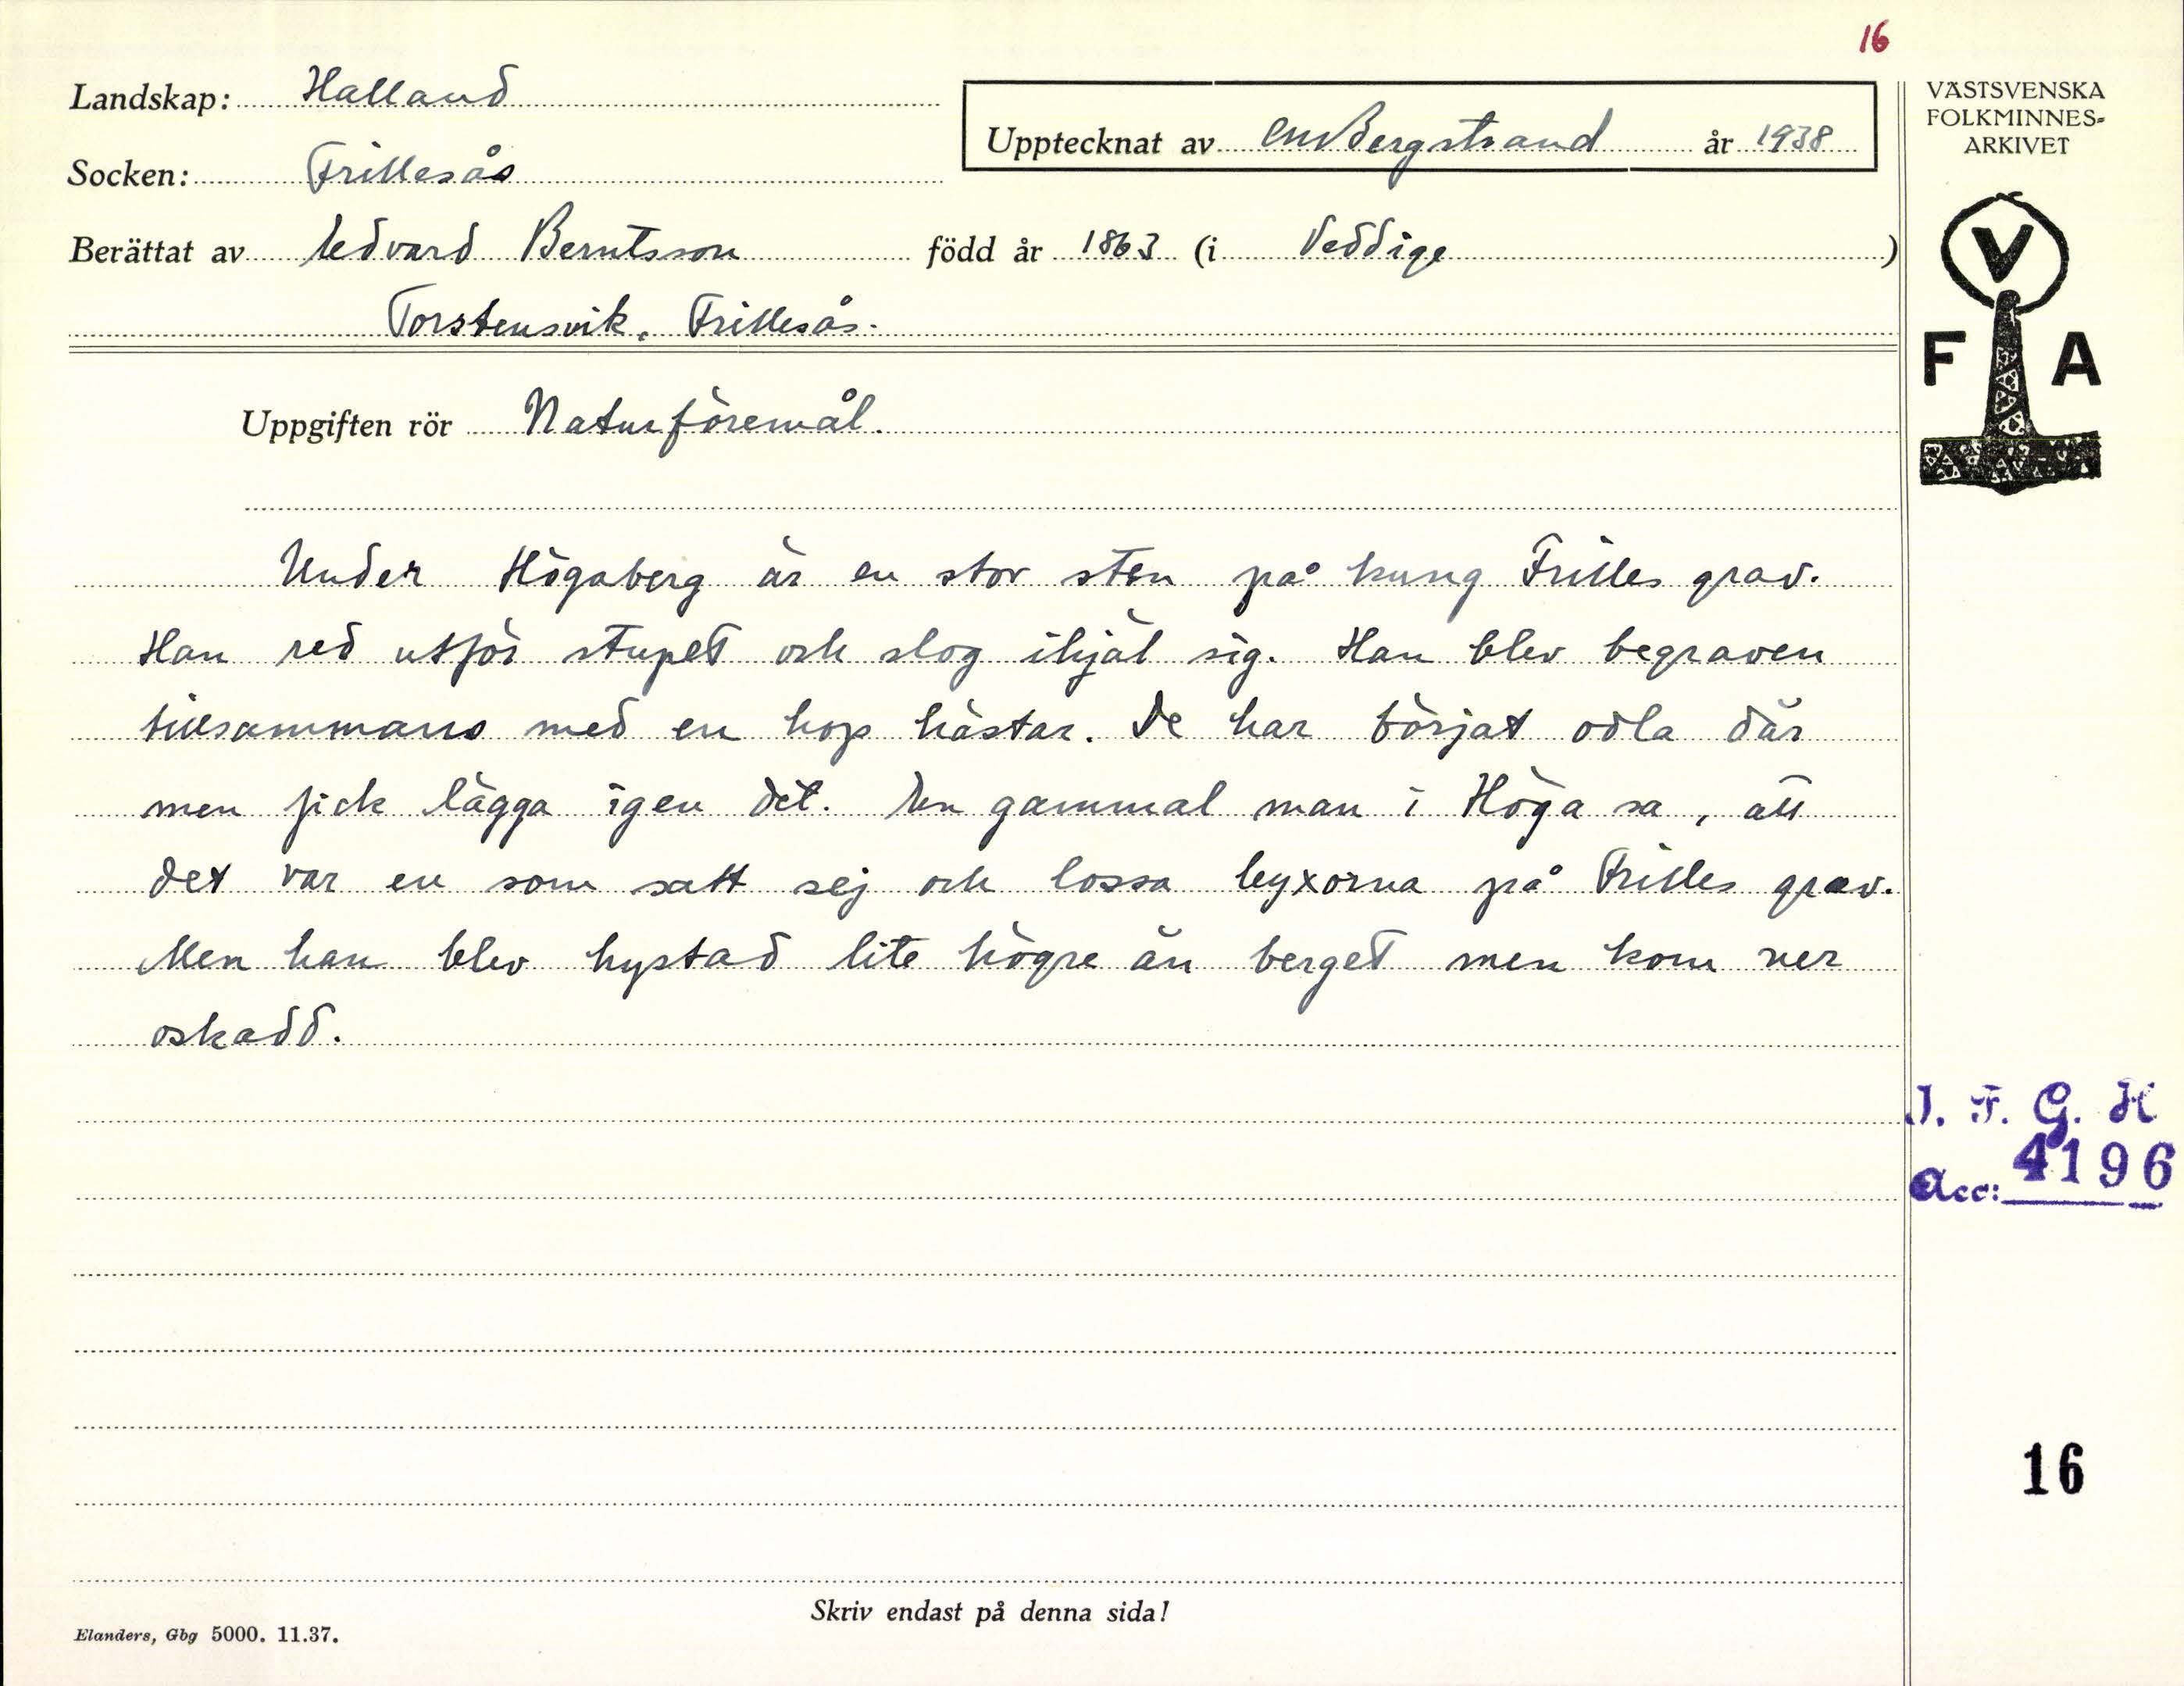 16
Landskap: Halland
Upptecknat av CM Bergstrand år 1938
VÄSTSVENSKA
FOLKMINNES-
ARKIVET
Socken: Frillesås
Berättat av Edvard Berntsson född år 1863 (i Veddige)
Torstensvik, Frillesås.
V
F A
Uppgiften rör Naturföremål.
Under Högaberg är en stor sten på kung Frilles grav.
Han red utför stupet och slog ihjäl sig. Han blev begraven
tillsammans med en hop hästar. De har börjat odla där
men fick lägga igen det. En gammal man i Höga sa, att
det var en som satt sej och lossa byxorna på Frilles grav.
Men han blev hystad lite högre än berget men kom ner
oskadd.
I. F. G. H
Acc: 4196
16
Skriv endast på denna sida!
Elanders, Gbg 5000. 11.37.